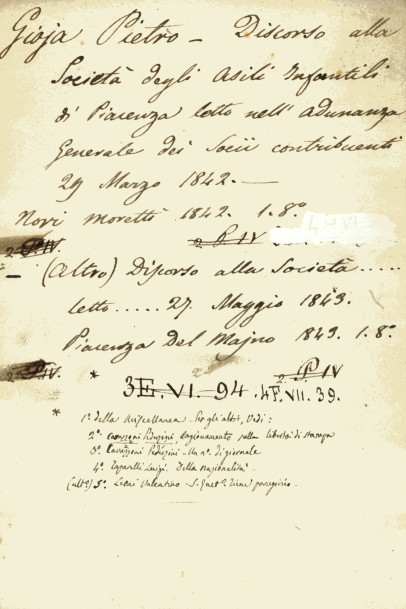 Gioja Pietro — Discorso alla
Società degli Asili Infantili
di Piacenza letto nell' adunanza
Generale dei Socii contribuenti
29 Marzo 1842. —
Novi Moretti 1842. 1. 8.º
2 P. IV.
2 P IV
— (Altro) Discorso alla Società.....
letto..... 27. Maggio 1843.
Piacenza Del Majno 1843. 1. 8.º
2 P. IV.
2 P IV
* 3E. VI. 94 4F. VII. 39.
* 1º della Miscellanea. Per gli altri, Vedi:
2º Cavazzoni Pederzini Ragionamento sulla libertà di stampa
3º Cavazzoni Pederzini - Un nº. di giornale
4º Taparelli Luigi. Della nazionalità.
(ult.º) 5º Leoni Valentino.